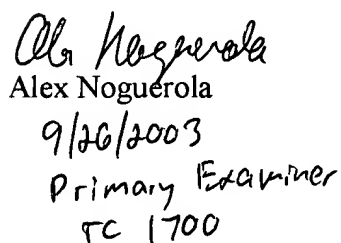 Alex Noguerola
Alex Noguerola
9/26/2003
Primary Examiner
TC 1700